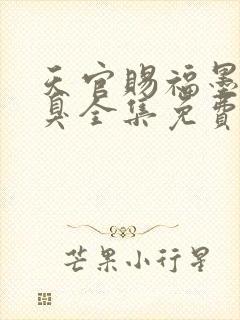 天官赐福墨
臭全集免费
芒果小行星